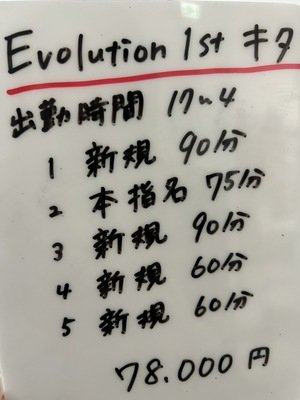 Evolution 1st キタ
出勤時間 17〜4
1 新規 90分
2 本指名 75分
3 新規 90分
4 新規 60分
5 新規 60分
78.000 円